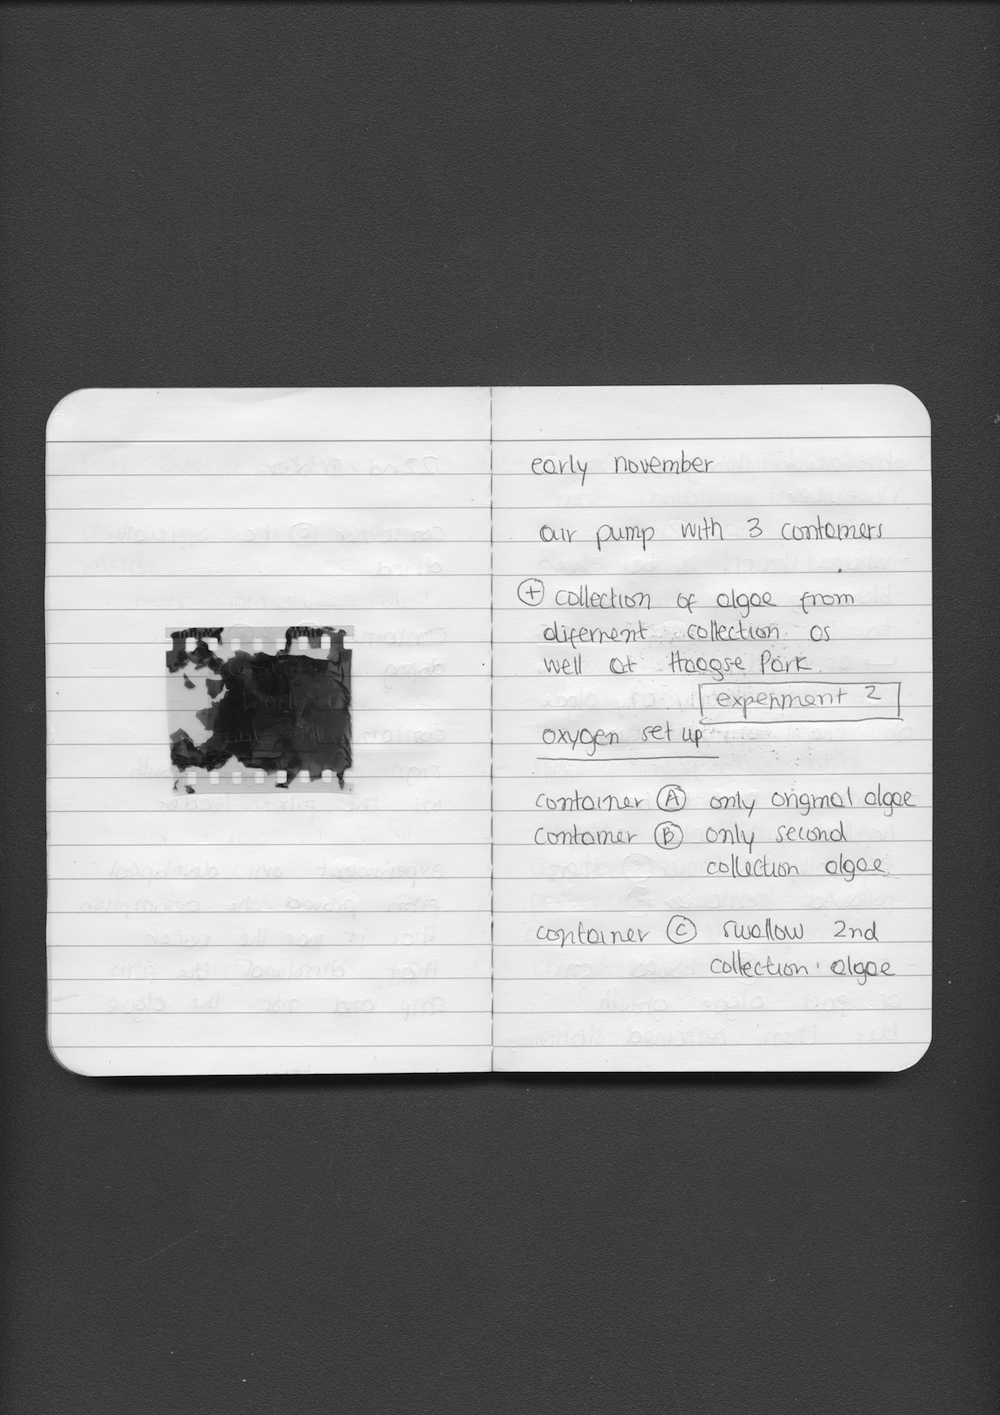 early november
air pump with 3 containers
+ collection of algae from
diferment collection as
well at Haagse Park
experiment 2
oxygen set up
container A only original algae
container B only second
collection algae
container C swallow 2nd
collection algae